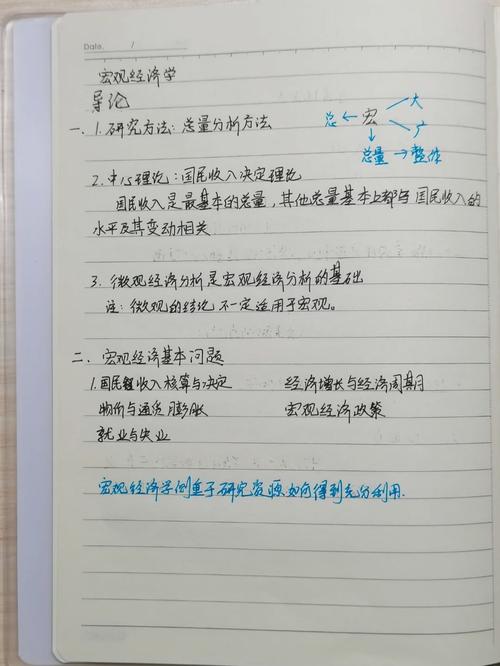 Date. /
宏观经济学
导论
一、1.研究方法：总量分析方法
总 ← 宏 大
广
↓
总量 → 整体
2.中心理论：国民收入决定理论
国民收入是最基本的总量，其他总量基本上都与国民收入的
水平及其变动相关
3.微观经济分析是宏观经济分析的基础
注：微观的结论不一定适用于宏观。
二、宏观经济基本问题
1.国民收入核算与决定 经济增长与经济周期
物价与通货膨胀 宏观经济政策
就业与失业
宏观经济学侧重于研究资源如何得到充分利用.